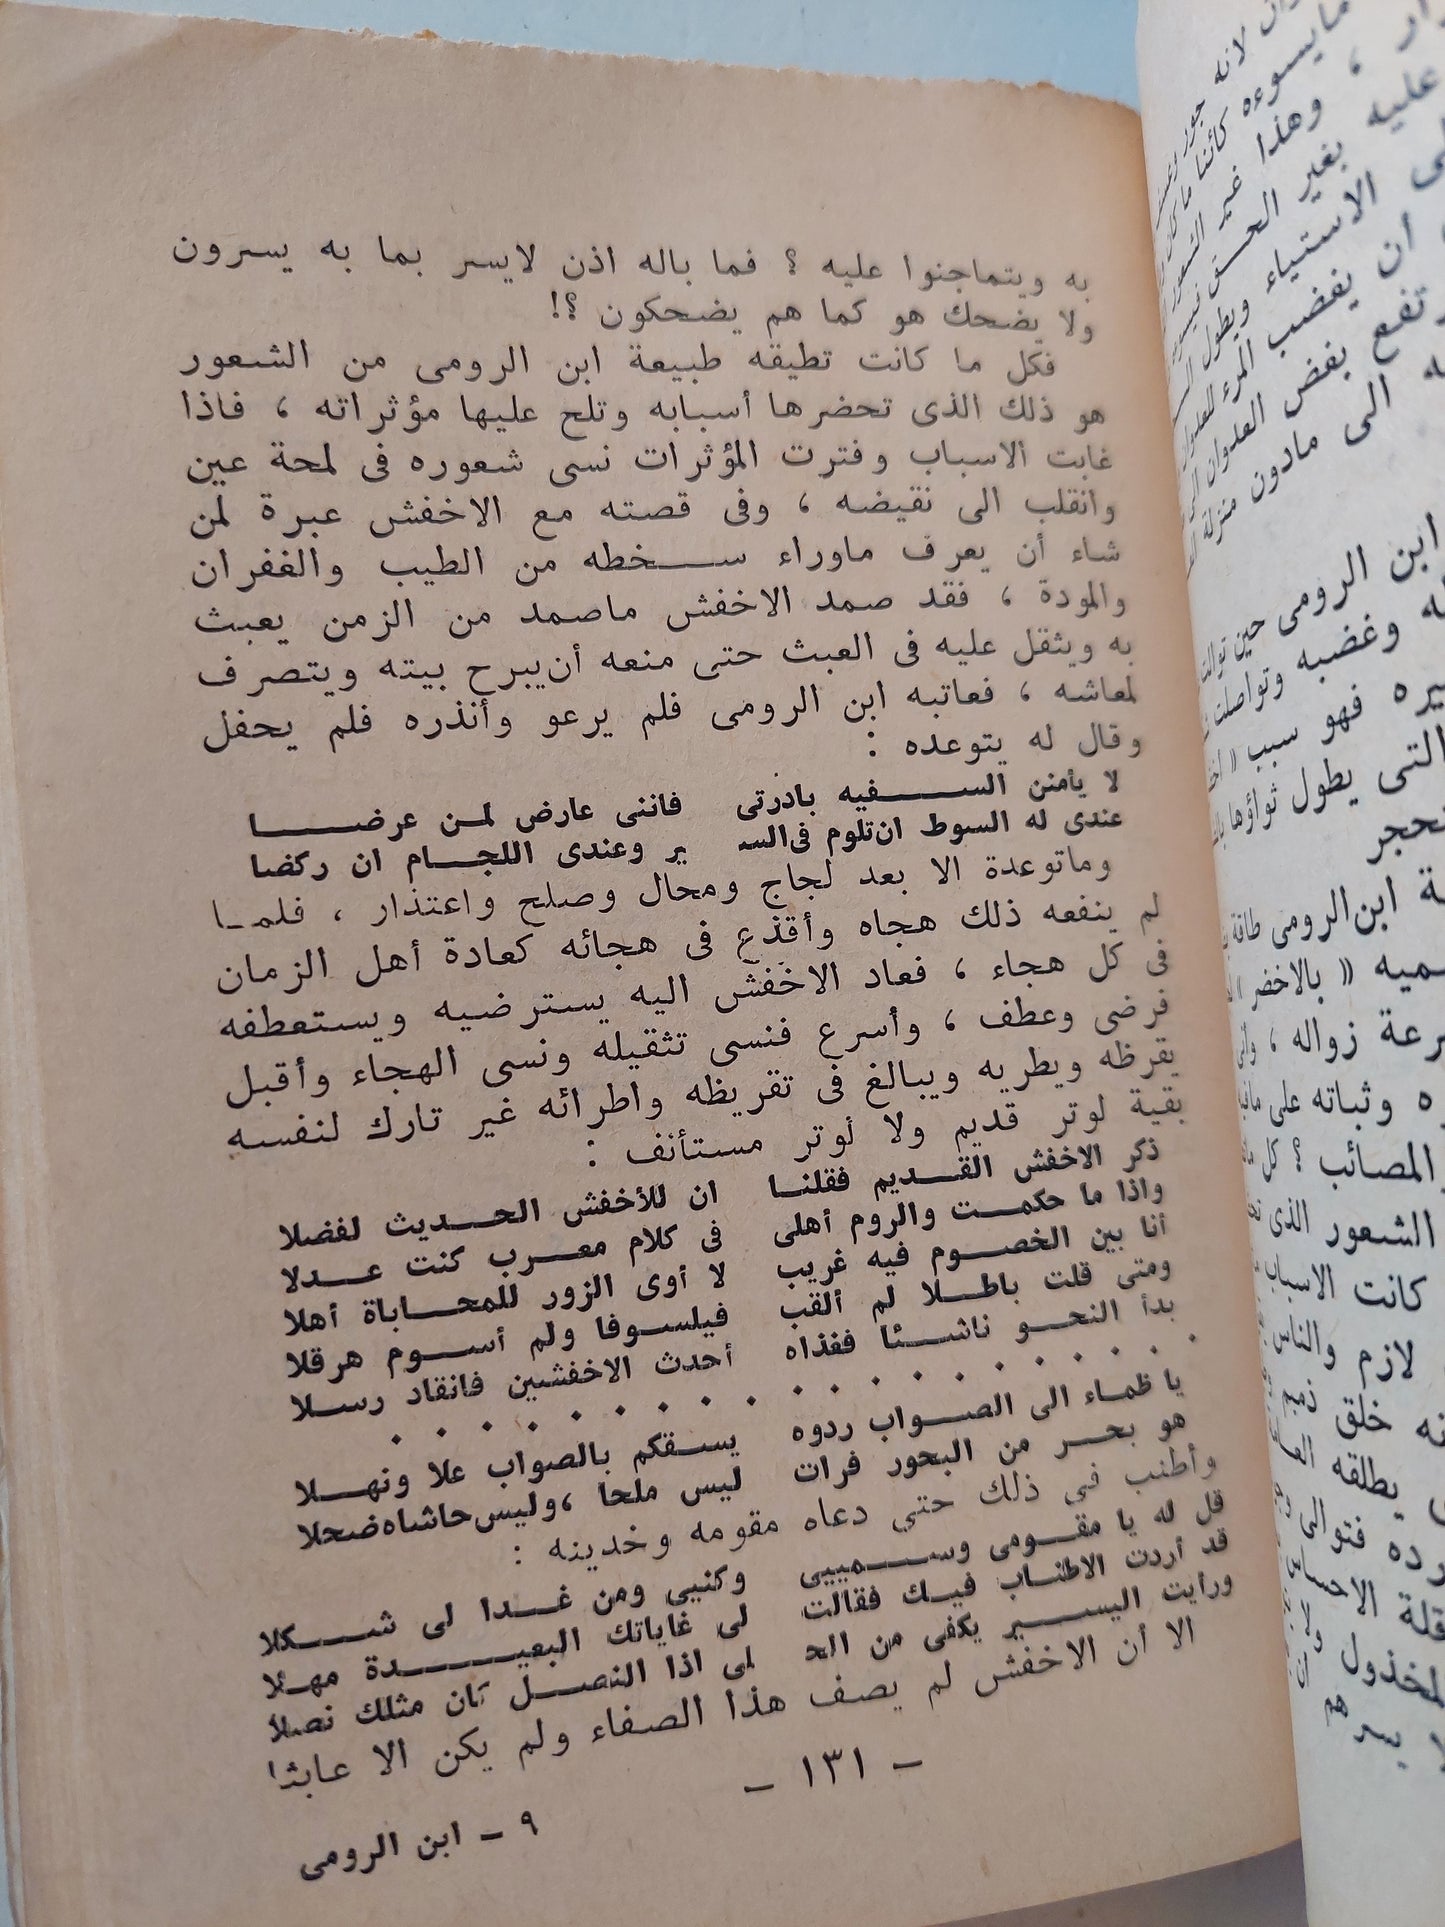 به ويتماجنوا عليه ؟ فما باله اذن لايسر بما به يسرون
ولا يضحك هو كما هم يضحكون ؟!
فكل ما كانت تطيقه طبيعة ابن الرومى من الشعور
هو ذلك الذى تحضرها أسبابه وتلح عليها مؤثراته ، فاذا
غابت الاسباب وفترت المؤثرات نسى شعوره فى لمحة عين
وانقلب الى نقيضه ، وفى قصته مع الاخفش عبرة لمن
شاء أن يعرف ماوراء سخطه من الطيب والغفران
والمودة ، فقد صمد الاخفش ماصمد من الزمن يعبث
به ويثقل عليه فى العبث حتى منعه أن يبرح بيته ويتصرف
لمعاشه ، فعاتبه ابن الرومى فلم يرعو وأنذره فلم يحفل
وقال له يتوعده :
لا يأمنن السفيه بادرتى فاننى عارض لمن عرضا
عندى له السوط ان تلوم فى السـ ير وعندى اللجام ان ركضا
وماتوعدة الا بعد لجاج ومحال وصلح واعتذار ، فلما
لم ينفعه ذلك هجاه وأقذع فى هجائه كعادة أهل الزمان
فى كل هجاء ، فعاد الاخفش اليه يسترضيه ويستعطفه
فرضى وعطف ، وأسرع فنسى تثقيله ونسى الهجاء وأقبل
يقرظه ويطريه ويبالغ فى تقريظه واطرائه غير تارك لنفسه
بقية لوتر قديم ولا لوتر مستأنف :
ذكر الاخفش القديم فقلنا ان للأخفش الحديث لفضلا
واذا ما حكمت والروم أهلى فى كلام معرب كنت عدلا
أنا بين الخصوم فيه غريب لا أوى الزور للمحاباة أهلا
ومتى قلت باطلا لم ألقب فيلسوفا ولم أسوم هرقلا
بدأ النحو ناشئا ففذاه أحدث الاخفشين فانقاد رسلا
. . . . . . . . . . . . . . . . . .
يا ظماء الى الصواب ردوه يسقكم بالصواب علا ونهلا
هو بحر من البحور فرات ليس ملحا ، وليس حاشاه ضحلا
وأطنب فى ذلك حتى دعاه مقومه وخدينه :
قل له يا مقومى وسميى وكنيى ومن غدا لى شكلا
قد أردت الاطناب فيك فقالت لى غاياتك البعيدة مهلا
ورأيت اليسير يكفى من الحـ لى اذا النصل كان مثلك نصلا
الا أن الاخفش لم يصف هذا الصفاء ولم يكن الا عابثا
— ١٣١ —
٩ — ابن الرومى
لانه جور
مايسوءه كائنا ما كان
، وهذا غير الشعور
عليه بغير الحق
الاستياء ويطول
أن يغضب المرء للعدوان
بغض العدوان
الى مادون منزلة
ابن الرومى حين توالت
وغضبه وتواصلت
فهو سبب «
التى يطول ثواؤها
ابن الرومى طاقة
« بالاخضر »
زواله ،
وثباته على
المصائب ؟ كل
الشعور الذى
كانت الاسباب
لازم والناس
خلق
يطلقه
فتوالى